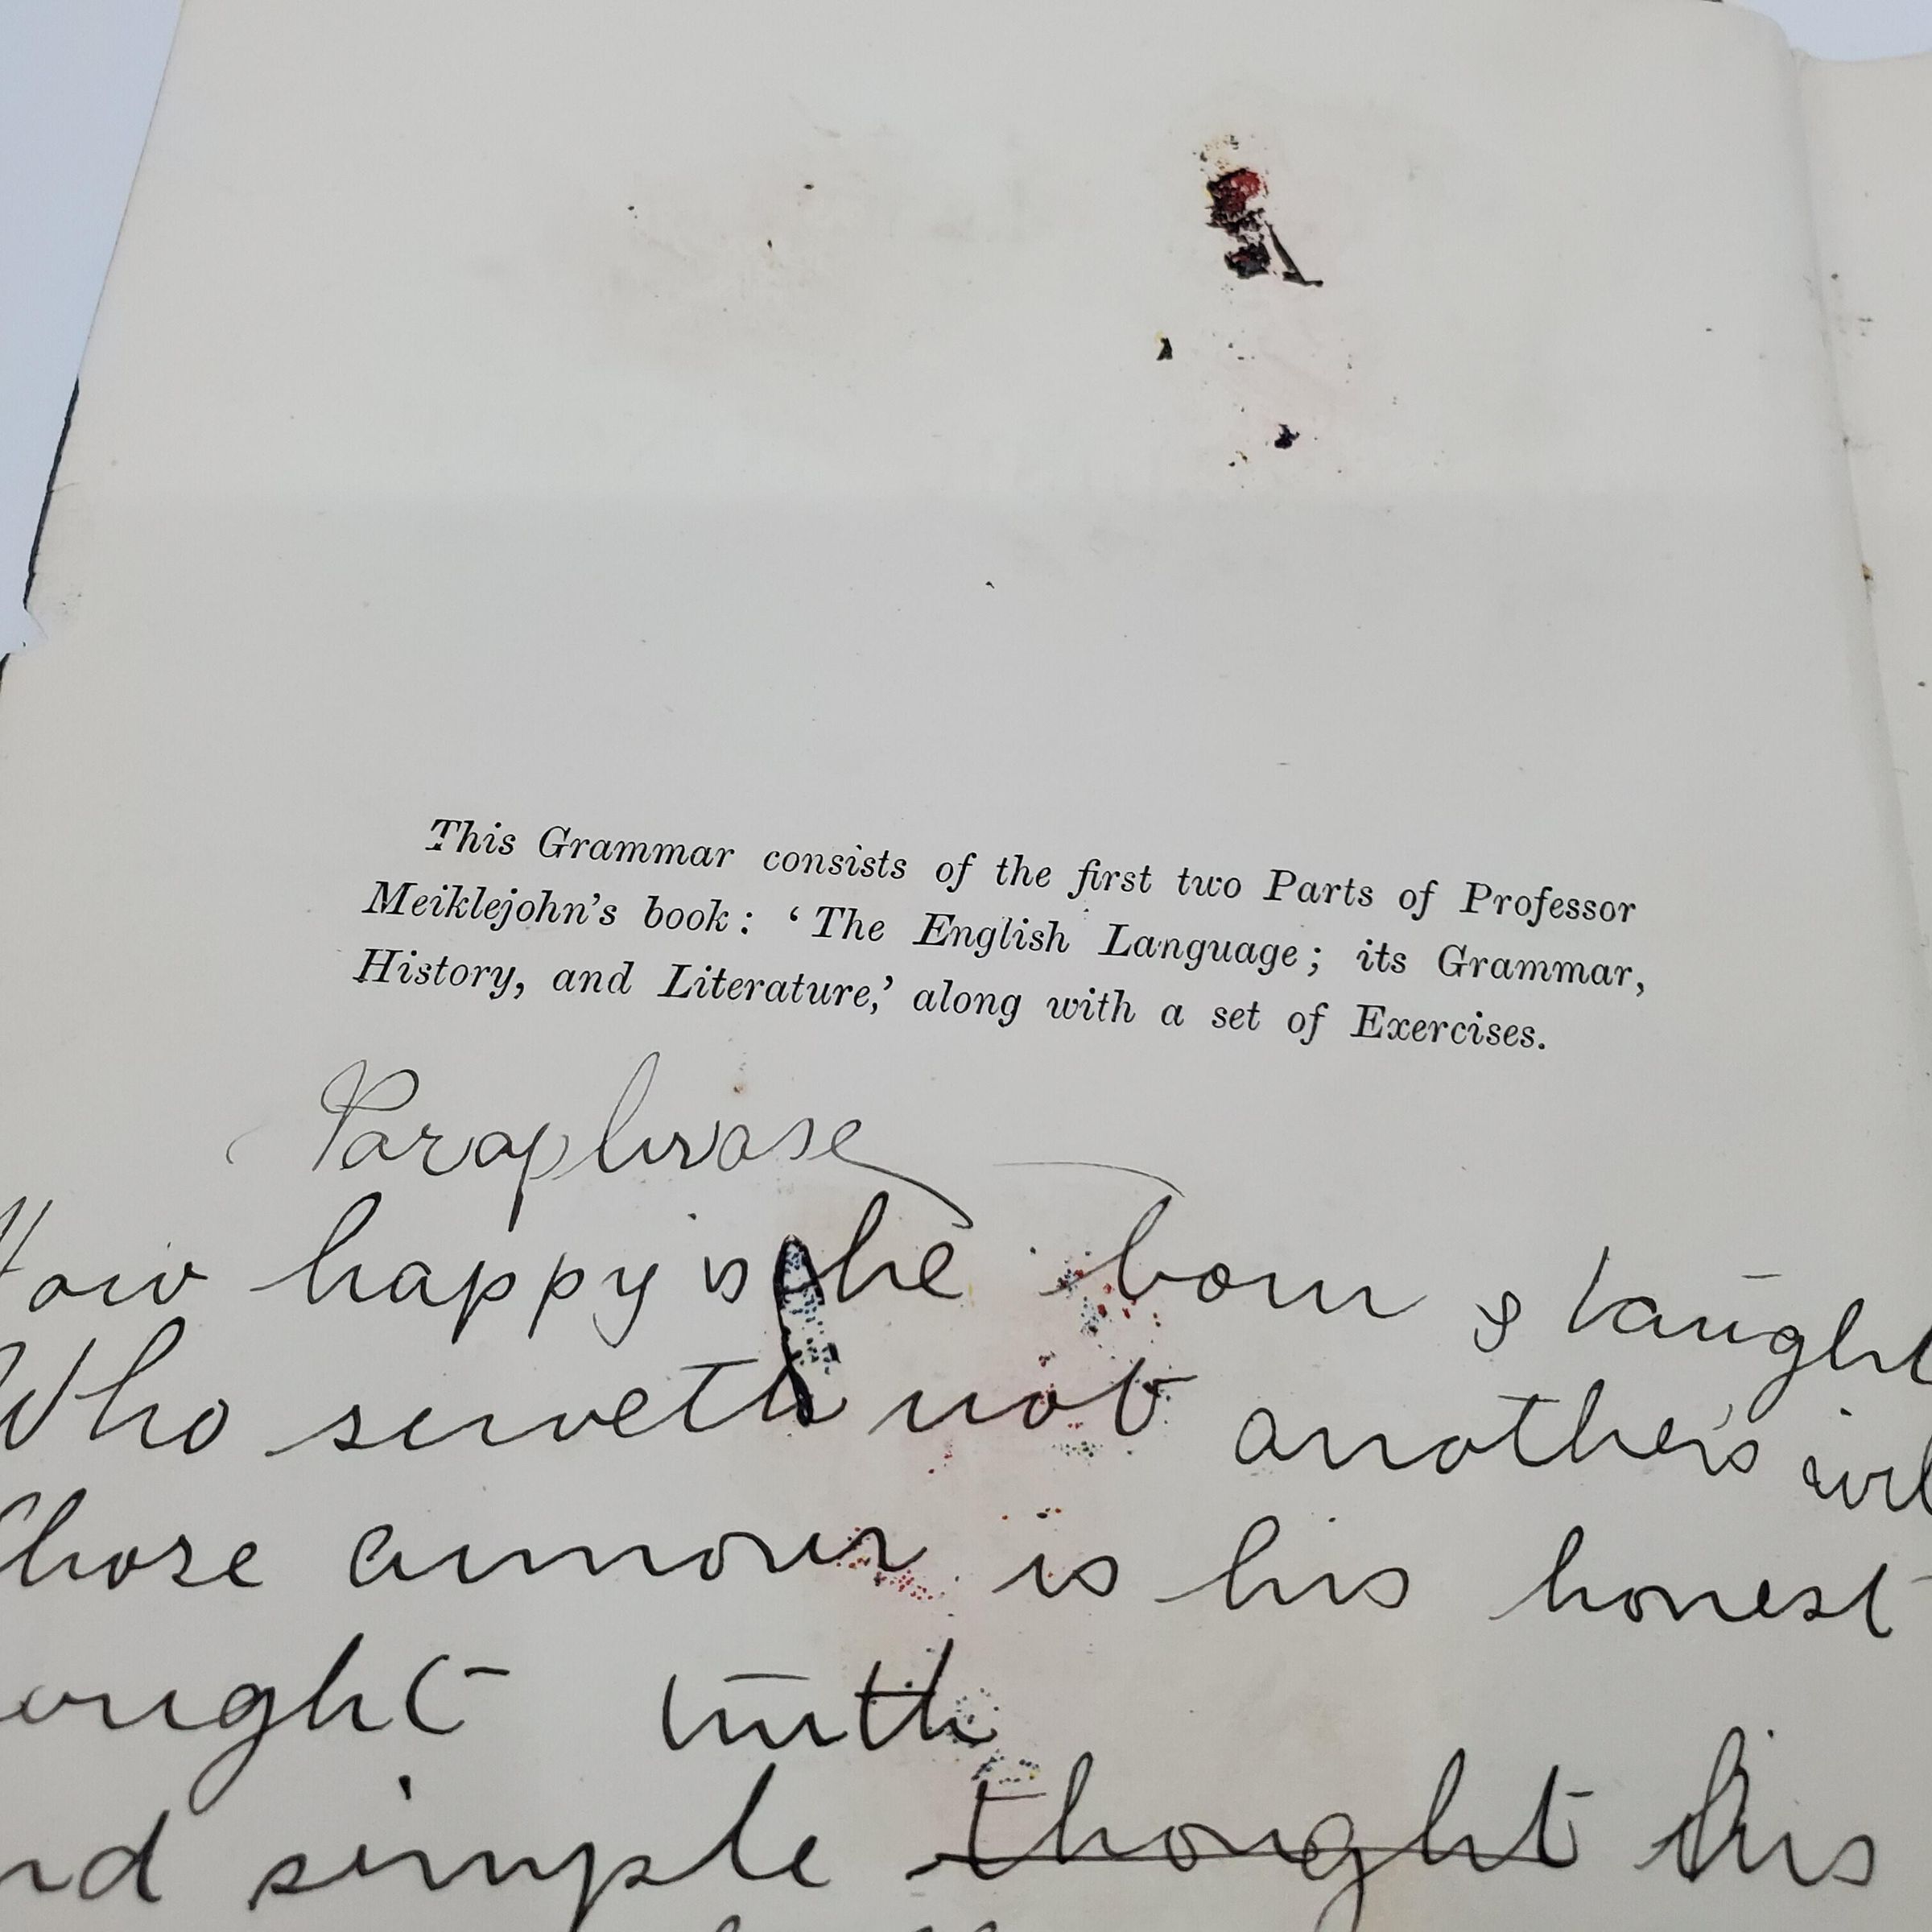 This Grammar consists of the first two Parts of Professor
Meiklejohn's book: ‘The English Language; its Grammar,
History, and Literature,’ along with a set of Exercises.
Paraphrase
How happy is he born & taught
Who serveth not another's wil
Whose armour is his honest
ought truth
nd simple thought his